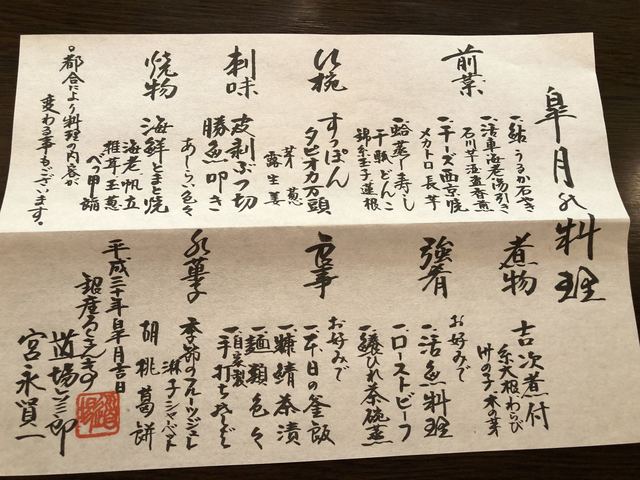 皐月の料理
前菜
一、鮎うるか石やき
一、活車海老湯引き
石川芋塩蓋香煎
一、チーズ西京焼
メカトロ長芋
一、蛤蒸し寿し
干瓢どんこ
錦糸玉子蓮根
吸椀
すっぽん
タピオカ万頭
芽葱
露生姜
刺味
皮剥ぶつ切
勝魚叩き
あしらい色々
焼物
海鮮とまと焼
海老帆立
椎茸玉葱
べっ甲餡
○都合により料理の内容が
変わる事もございます。
煮物
吉次煮付
糸大根わらび
竹の子木の芽
強肴
お好みで
一、活魚料理
一、ローストビーフ
一、鱶ひれ茶碗蒸
食事
お好みで
一、本日の釜飯
一、糠鯖茶漬
一、麺類色々
一、自家製
手打ちうどん
水菓子
季節のフルーツジュレ
淋子シャーベット
胡桃葛餅
平成三十年皐月吉日
銀座ろくさん亭
道場六三郎
宮永賢一